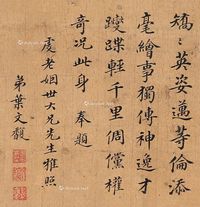 矯〻英姿邁等倫添
毫繪事獨傳神逸才
蹀輕千里倜儻權
奇況此身　奉題
虔老姻世大兄先生雅照
弟葉文馥